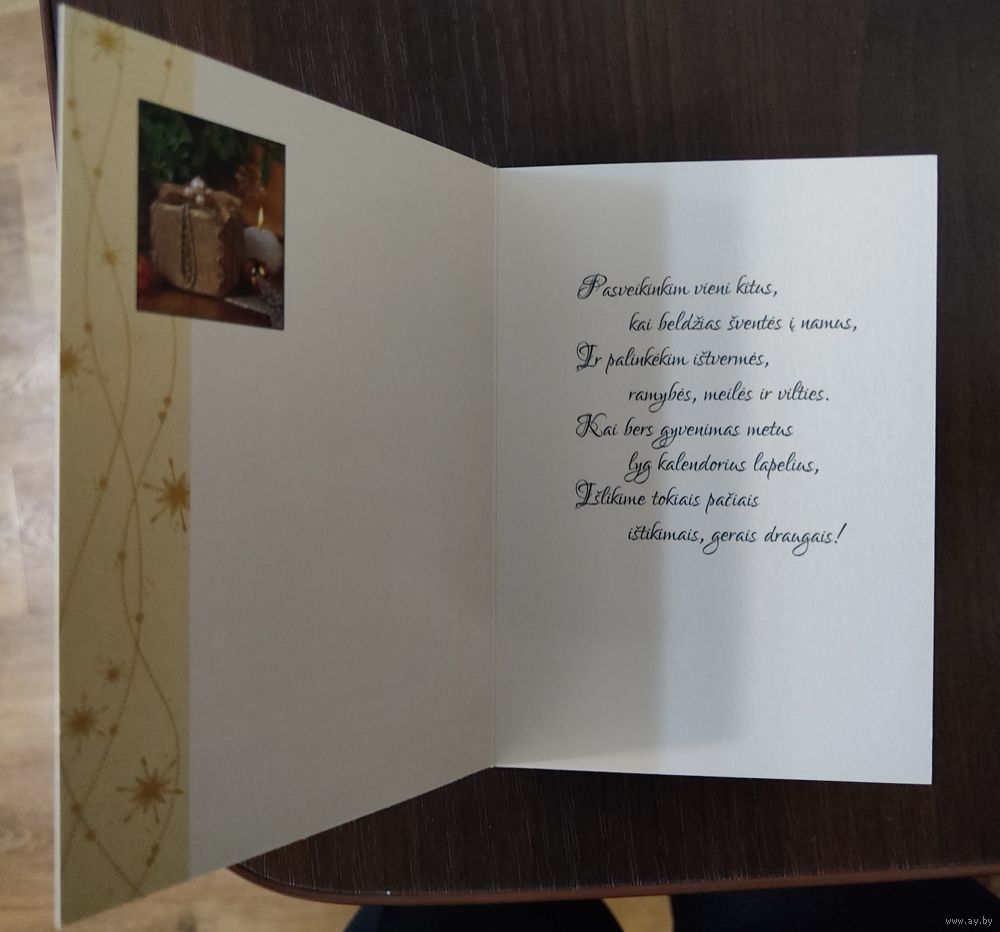 Pasveikinkim vieni kitus,
kai beldžias šventės į namus,
Ir palinkėkim ištvermės,
ramybės, meilės ir vilties.
Kai bers gyvenimas metus
lyg kalendorius lapelius,
Išlikime tokiais pačiais
ištikimais, gerais draugais!
www.ay.by